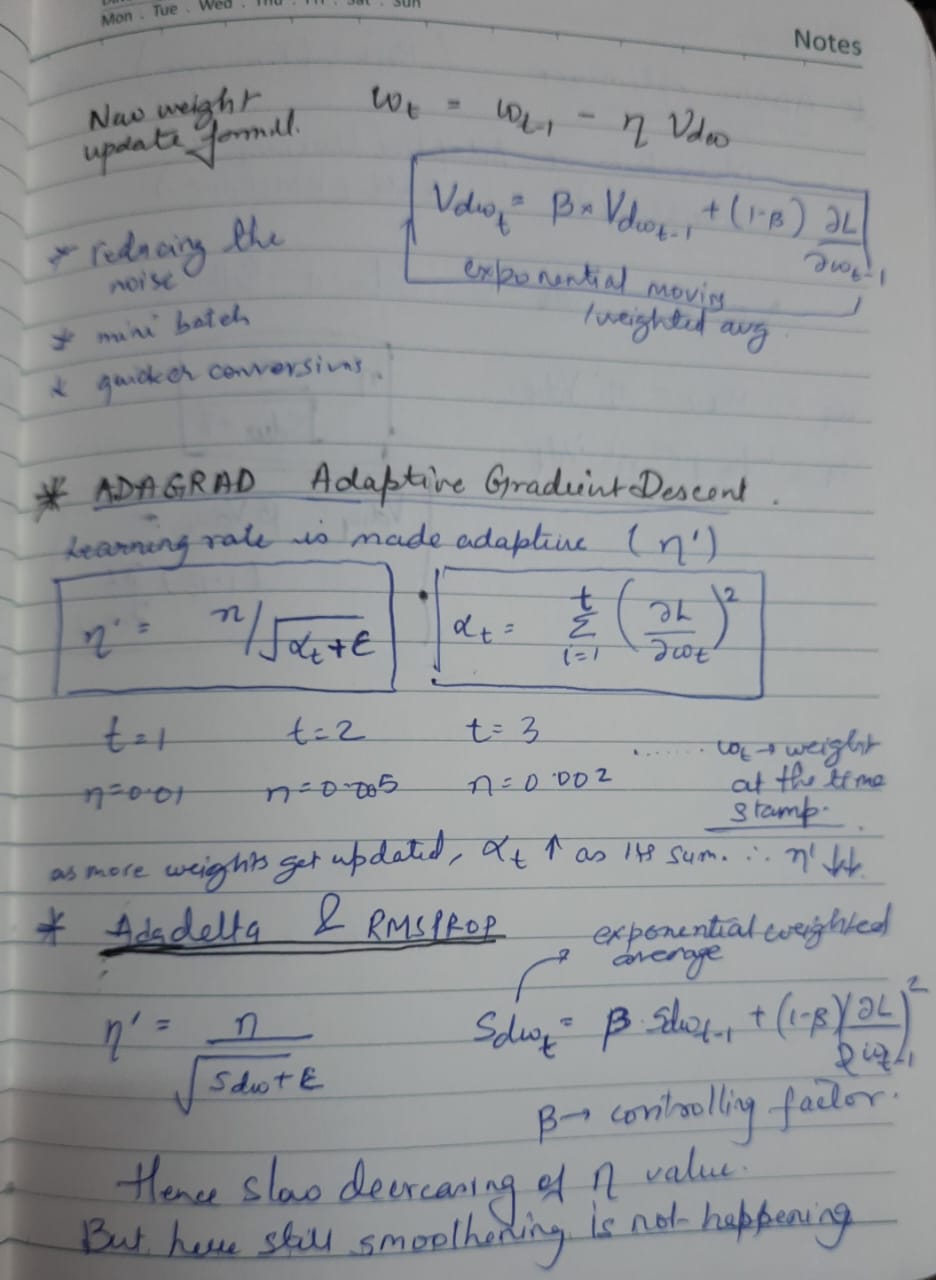 Mon . Tue . Wed . Thu . Fri . Sat . Sun
Notes
New weight
update formill.
ωt = ωt-1 - η Vdω
Vdωt = β * Vdωt-1 + (1-β) ∂L/∂ωt-1
exponential moving
/weighted avg
* reducing the
noise
* mini batch
* quicker conversions.
* ADAGRAD Adaptive Gradient Descent .
Learning rate is made adaptive (η')
η' = η/√αt+ε
αt = t Σ i=1 (∂L/∂ωt)²
t=1 t=2 t=3
....... ωt → weight
at the time
stamp.
η=0.01 η=0.005 η=0.002
as more weights get updated, αt ↑ as its sum. ∴ η' ↓↓.
* Adadelta & RMSPROP
exponential weighted
average
η' = η/√Sdω+ε
Sdωt = β. Sdωt-1 + (1-β)(∂L/∂ωt-1)²
β→ controlling factor.
Hence slow decreasing of η value.
But here still smoothening is not happening